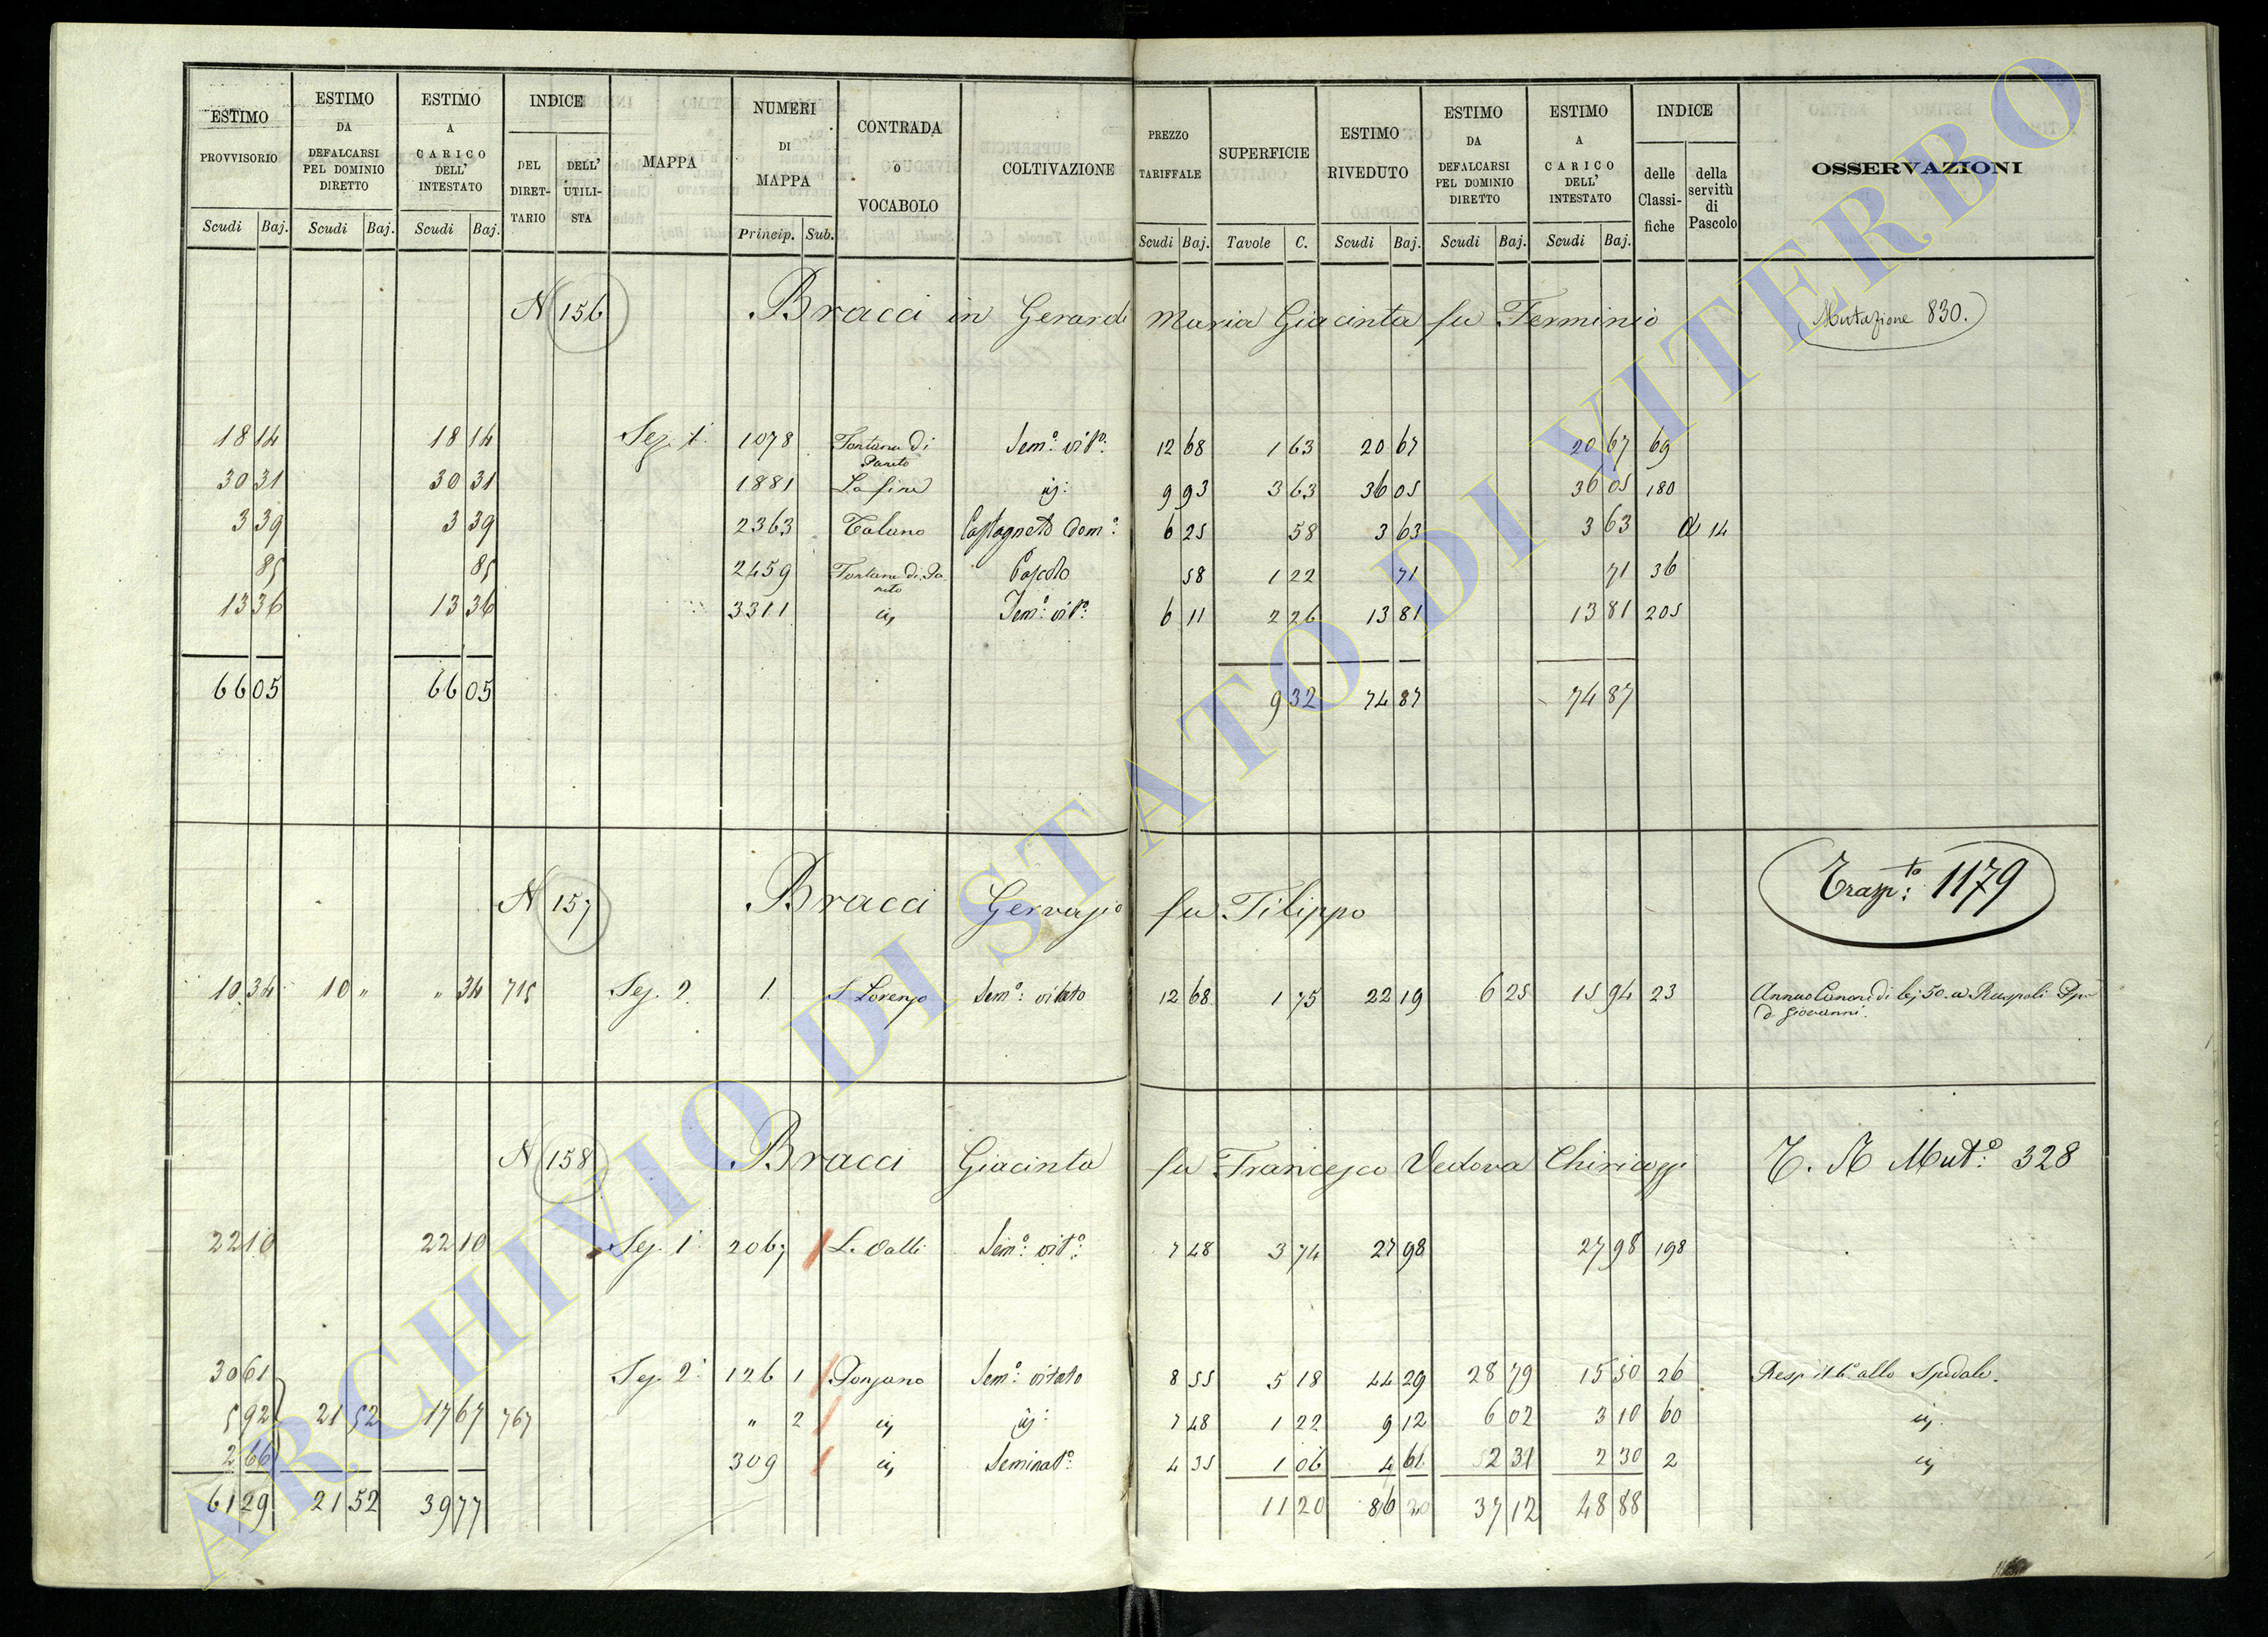 ESTIMO PROVVISORIO Scudi Baj.
ESTIMO DA DEFALCARSI PEL DOMINIO DIRETTO Scudi Baj.
ESTIMO A CARICO DELL' INTESTATO Scudi Baj.
INDICE DEL DIRET-TARIO DELL' UTILI-STA
MAPPA
NUMERI DI MAPPA Princip. Sub.
CONTRADA o VOCABOLO
COLTIVAZIONE
PREZZO TARIFFALE Scudi Baj.
SUPERFICIE Tavole C.
ESTIMO RIVEDUTO Scudi Baj.
ESTIMO DA DEFALCARSI PEL DOMINIO DIRETTO Scudi Baj.
ESTIMO A CARICO DELL' INTESTATO Scudi Baj.
INDICE delle Classi-fiche della servitù di Pascolo
OSSERVAZIONI
N 156 Bracci in Gerardi Maria Giacinta fu Ferminio Mutazione 830.
18 14 18 14 Sez. 1ª 1078 Fontana di Paneto Sem.º vit.º 12 68 1 63 20 67 20 67 69
30 31 30 31 1881 La fine id: 9 93 3 63 36 05 36 05 180
3 39 3 39 2363 Talano Castagneto Dom.º 6 25 58 3 63 3 63 d 14
85 85 2459 Fontana di Paneto Pascolo 58 1 22 71 71 36
13 36 13 36 3311 id Sem.º vit.º 6 11 2 26 13 81 13 81 205
66 05 66 05 9 32 74 87 74 87
N 157 Bracci Gervasio fu Filippo Trasp.to 1179
10 34 10 " " 34 715 Sez. 2 1 S Lorenzo Sem.º vitato 12 68 1 75 22 19 6 25 15 94 23 Annuo Canone di bj 50 a Ruspoli Ppe
D. Giovanni.
N 158 Bracci Giacinta fu Francesco Vedova Chiricozzi T. N Mut.º 328
22 10 22 10 Sez. 1ª 2067 Le Valli Sem.º vit.º 7 48 3 74 27 98 27 98 198
30 61 Sez. 2ª 126 1 Ponzano Sem.º vitato 8 55 5 18 44 29 28 79 15 50 26 Resp allo Spedale.
5 92 21 52 17 67 767 " 2 id id: 7 48 1 22 9 12 6 02 3 10 60 id.
2 66 309 id Seminat.º 4 35 1 06 4 61 2 31 2 30 2 id
61 29 21 52 39 77 11 20 86 20 37 12 48 88
ARCHIVIO DI STATO DI VITERBO